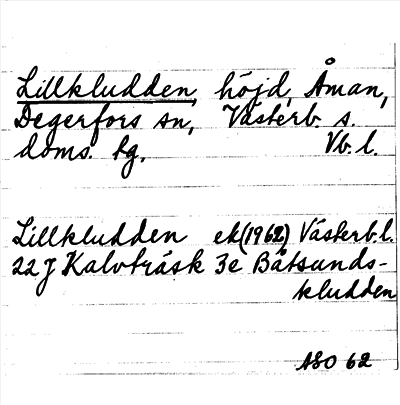 Lillkludden, höjd, Åman,
Degerfors sn, Västerb. s.
doms. hg. Vb. l.
Lillkludden ek (1962) Västerb. l.
22 J Kalvträsk 3e Båtsunds-
kludden
ASO 62